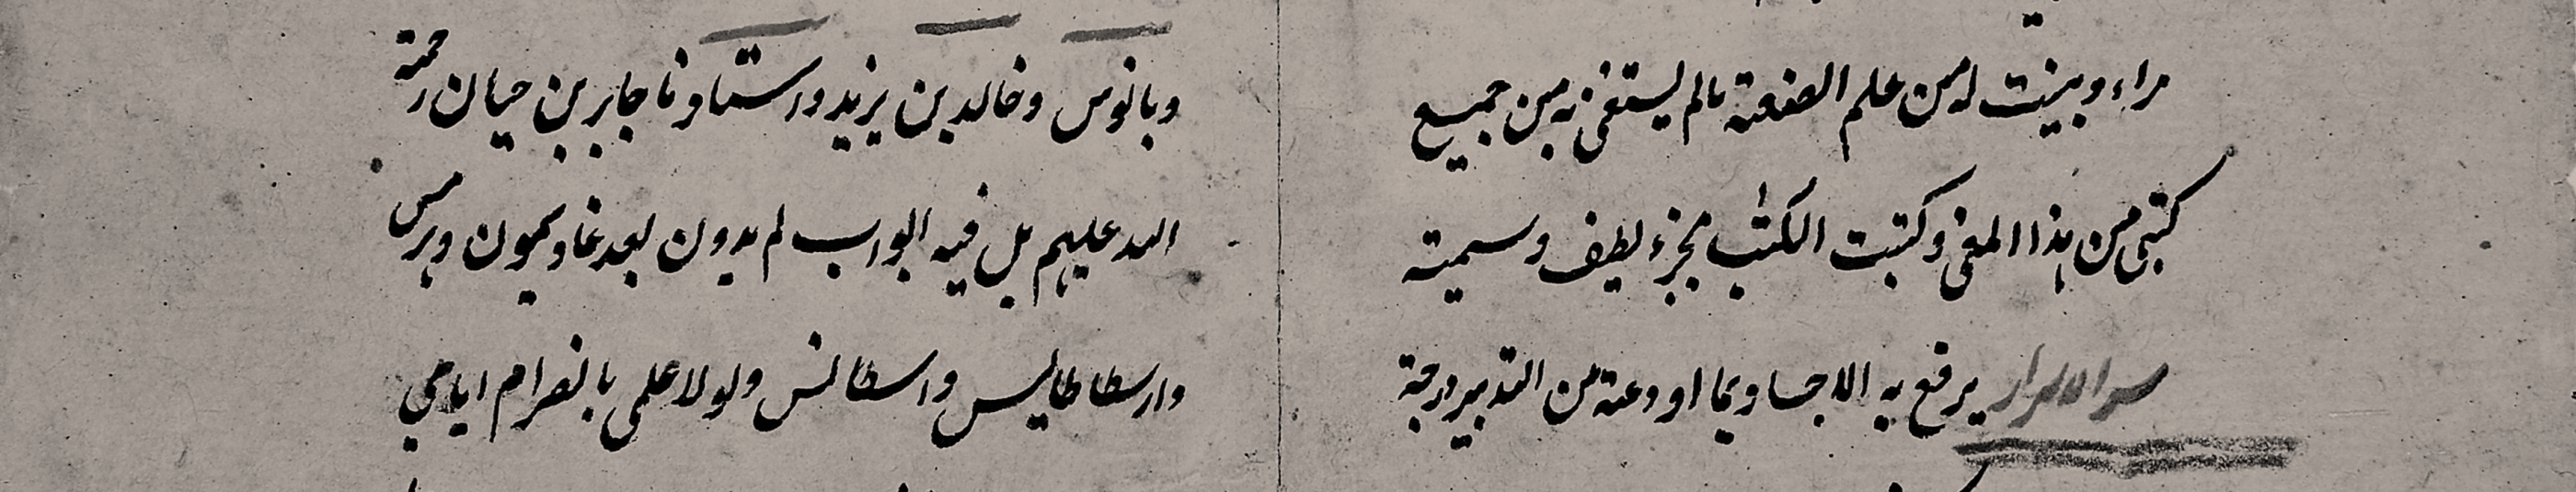 مراء وبينت له من علم الصنعة مالم يستغنى به من جميع
كتبى من هذا المعنى وكتبت الكتب بجزء لطيف وسميته
سر الاسرار يرفع به الاجساد بما اودعته من التدبير درجة
وبانوس وخالد بن يزيد واستاونا جابر بن حيان رحمة
الله عليهم بل فيه ابواب لم يدون بعد غاويمون وهرمس
وارسطاطاليس واسطالس ولولا علمى بانصرام ايامي